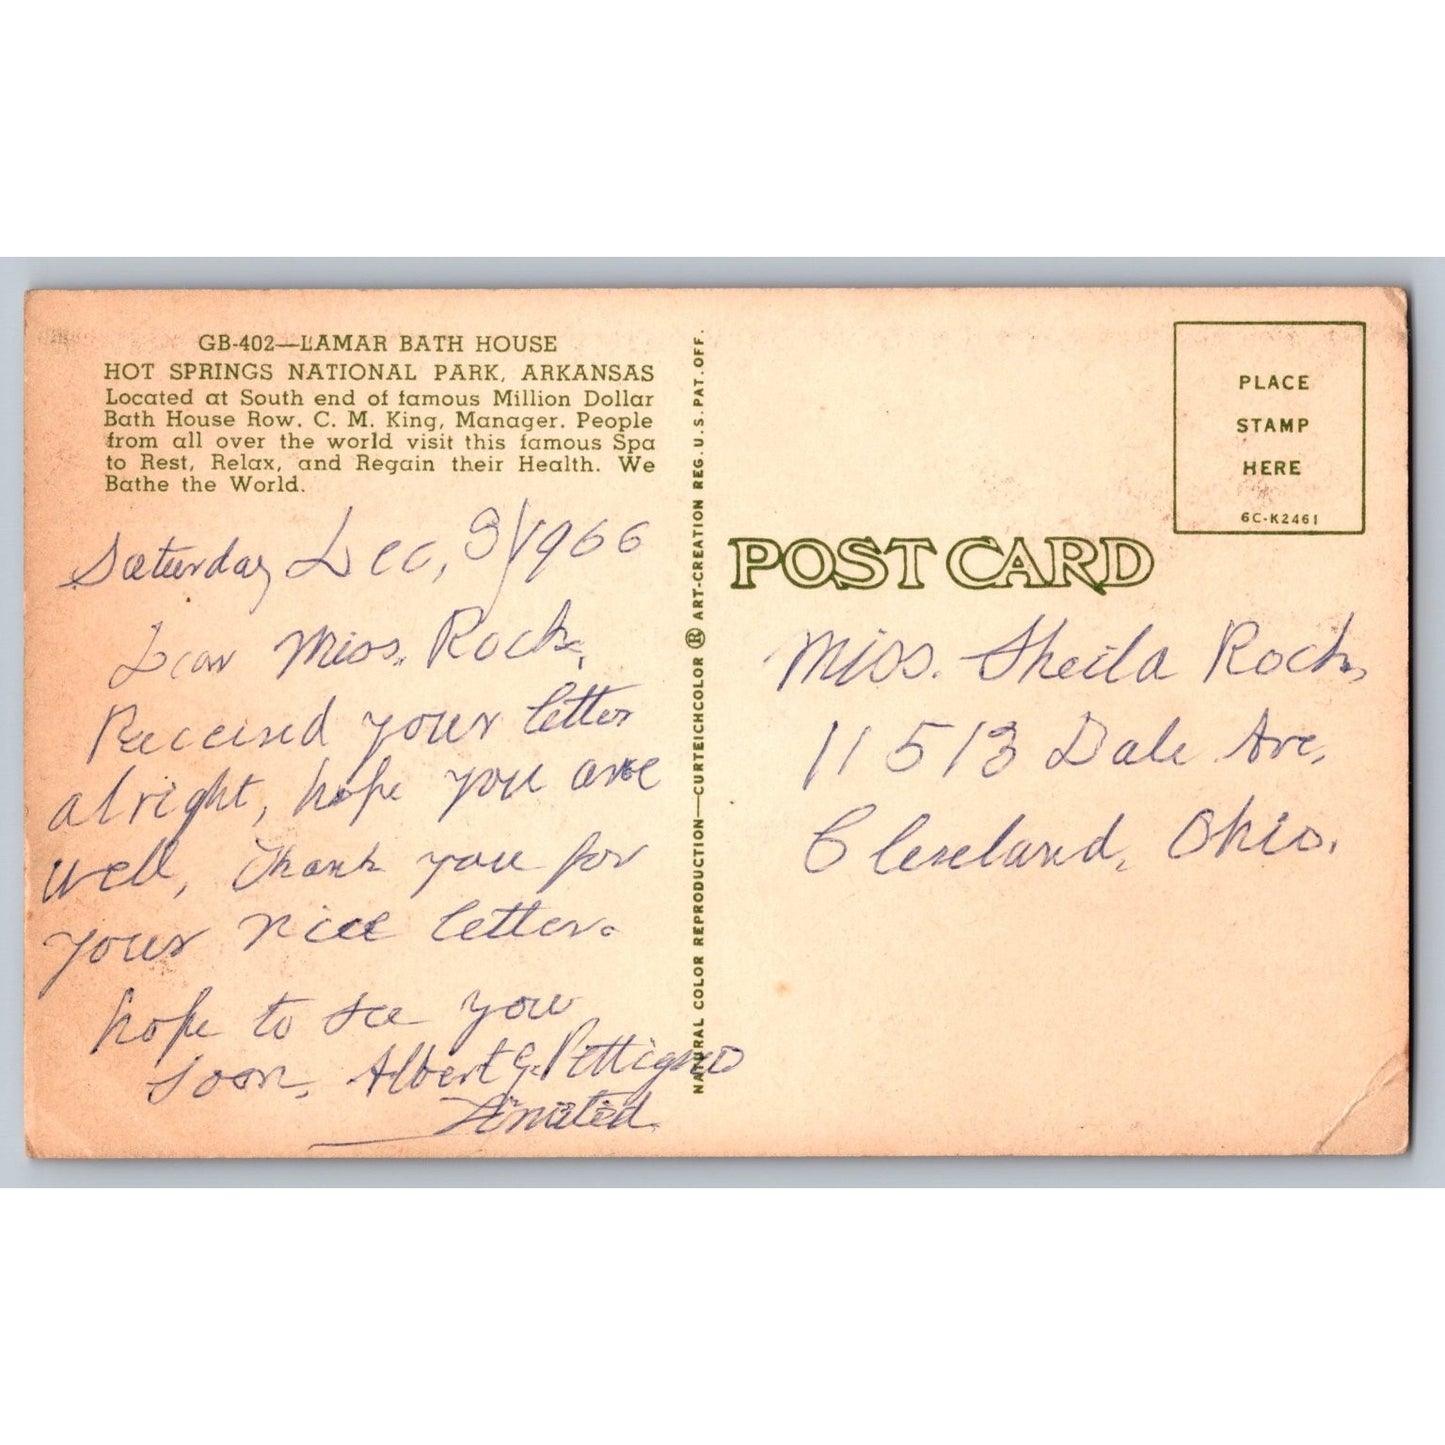 GB-402—LAMAR BATH HOUSE
HOT SPRINGS NATIONAL PARK, ARKANSAS
Located at South end of famous Million Dollar
Bath House Row. C. M. King, Manager. People
from all over the world visit this famous Spa
to Rest, Relax, and Regain their Health. We
Bathe the World.
Saturday Dec, 3/1966
Dear Miss. Rock,
Received your letter
alright, hope you are
well, Thank you for
your nice letter.
hope to see you
soon, Albert G. Pettigrew
NATURAL COLOR REPRODUCTION—CURTEICHCOLOR ® ART-CREATION REG. U.S. PAT. OFF.
PLACE
STAMP
HERE
6C-K2461
POST CARD
Miss. Sheila Rock,
11513 Dale Ave,
Cleveland, Ohio.